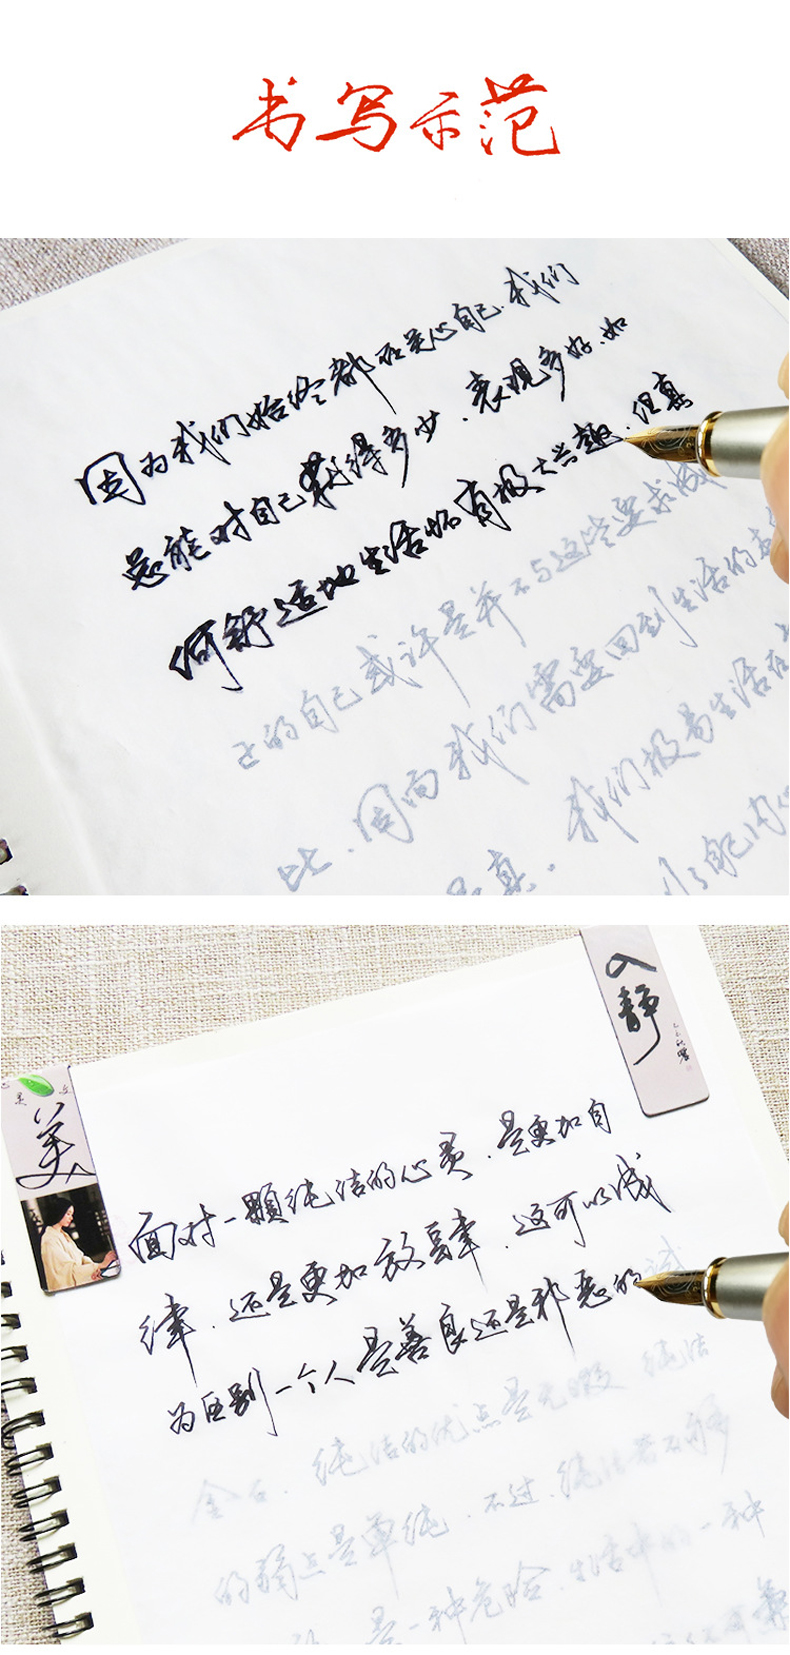 书写示范
因为我们始终都在关心自己.我们
总能对自己获得多少.表现多好.如
何舒适地生活怀有极大兴趣.但真
正的自己或许是并不与这些要求成
比.因而我们需要回到生活的
是真.我们极易生活在
入静
美
面对一颗纯洁的心灵.是更加自
律.还是更加放肆.这可以成
为区别一个人是善良还是邪恶的试
金石.纯洁的优点是无暇 纯洁
的弱点是单纯.不过.纯洁若不能够
是一种危险.生活中的一种